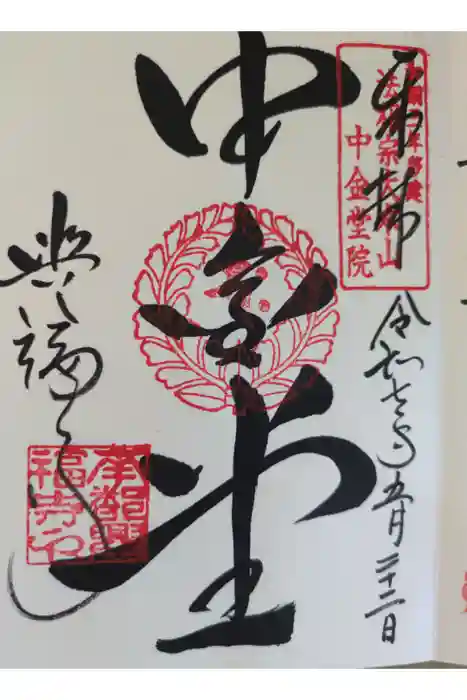 奉拝
法相宗大本山
中金堂院
令和七年五月二十二日
中金堂
興福寺
南都興福寺印